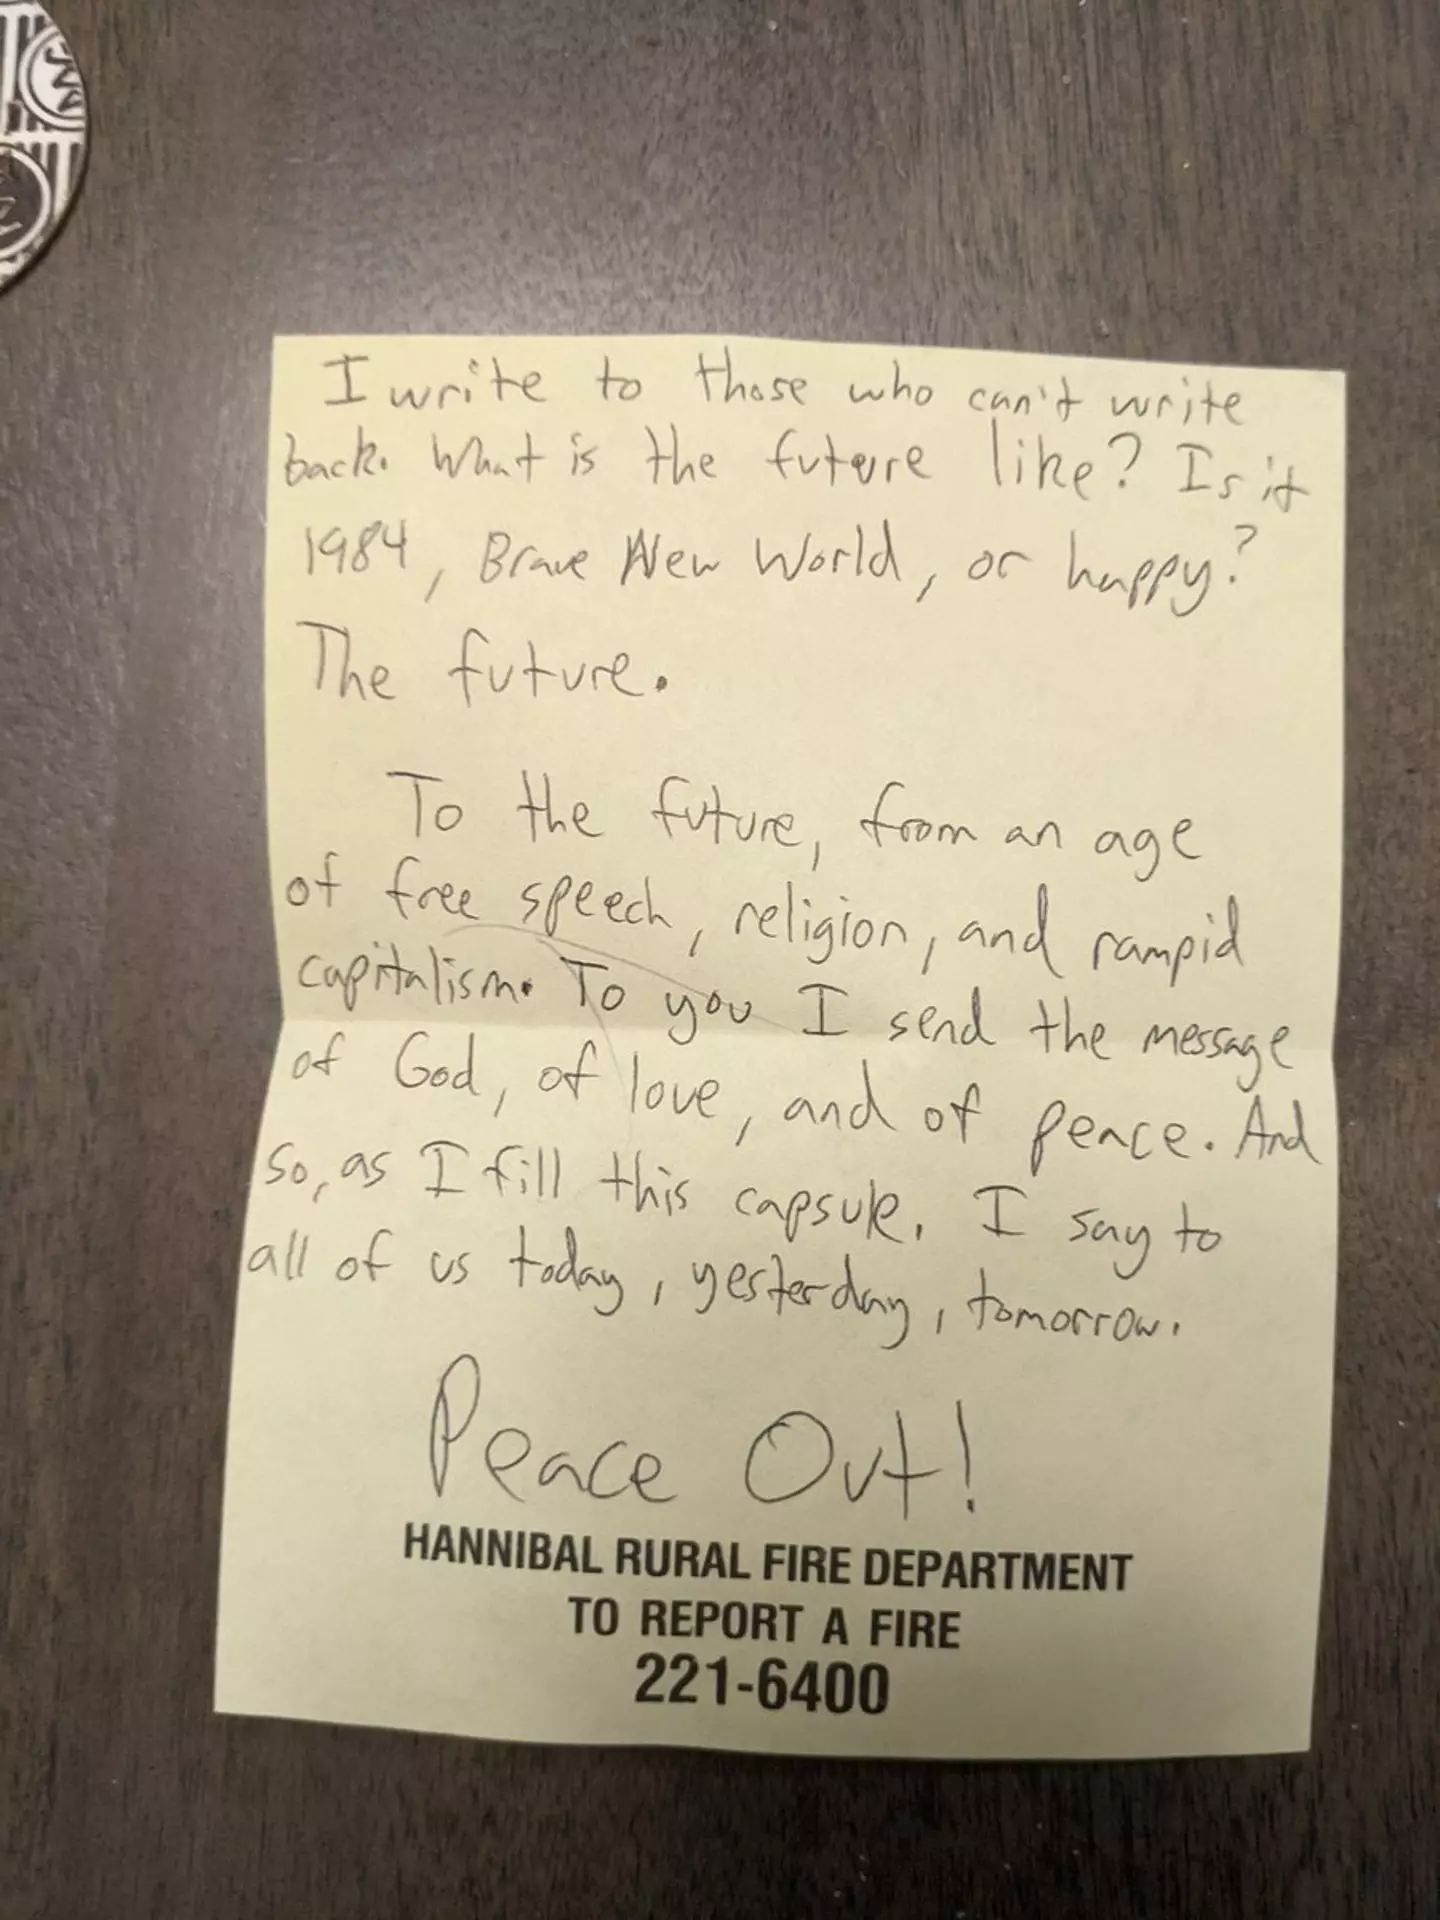 I write to those who can't write
back. What is the future like? Is it
1984, Brave New World, or happy?
The future.
To the future, from an age
of free speech, religion, and rampid
capitalism. To you I send the message
of God, of love, and of peace. And
so, as I fill this capsule, I say to
all of us today, yesterday, tomorrow.
Peace Out!
HANNIBAL RURAL FIRE DEPARTMENT
TO REPORT A FIRE
221-6400